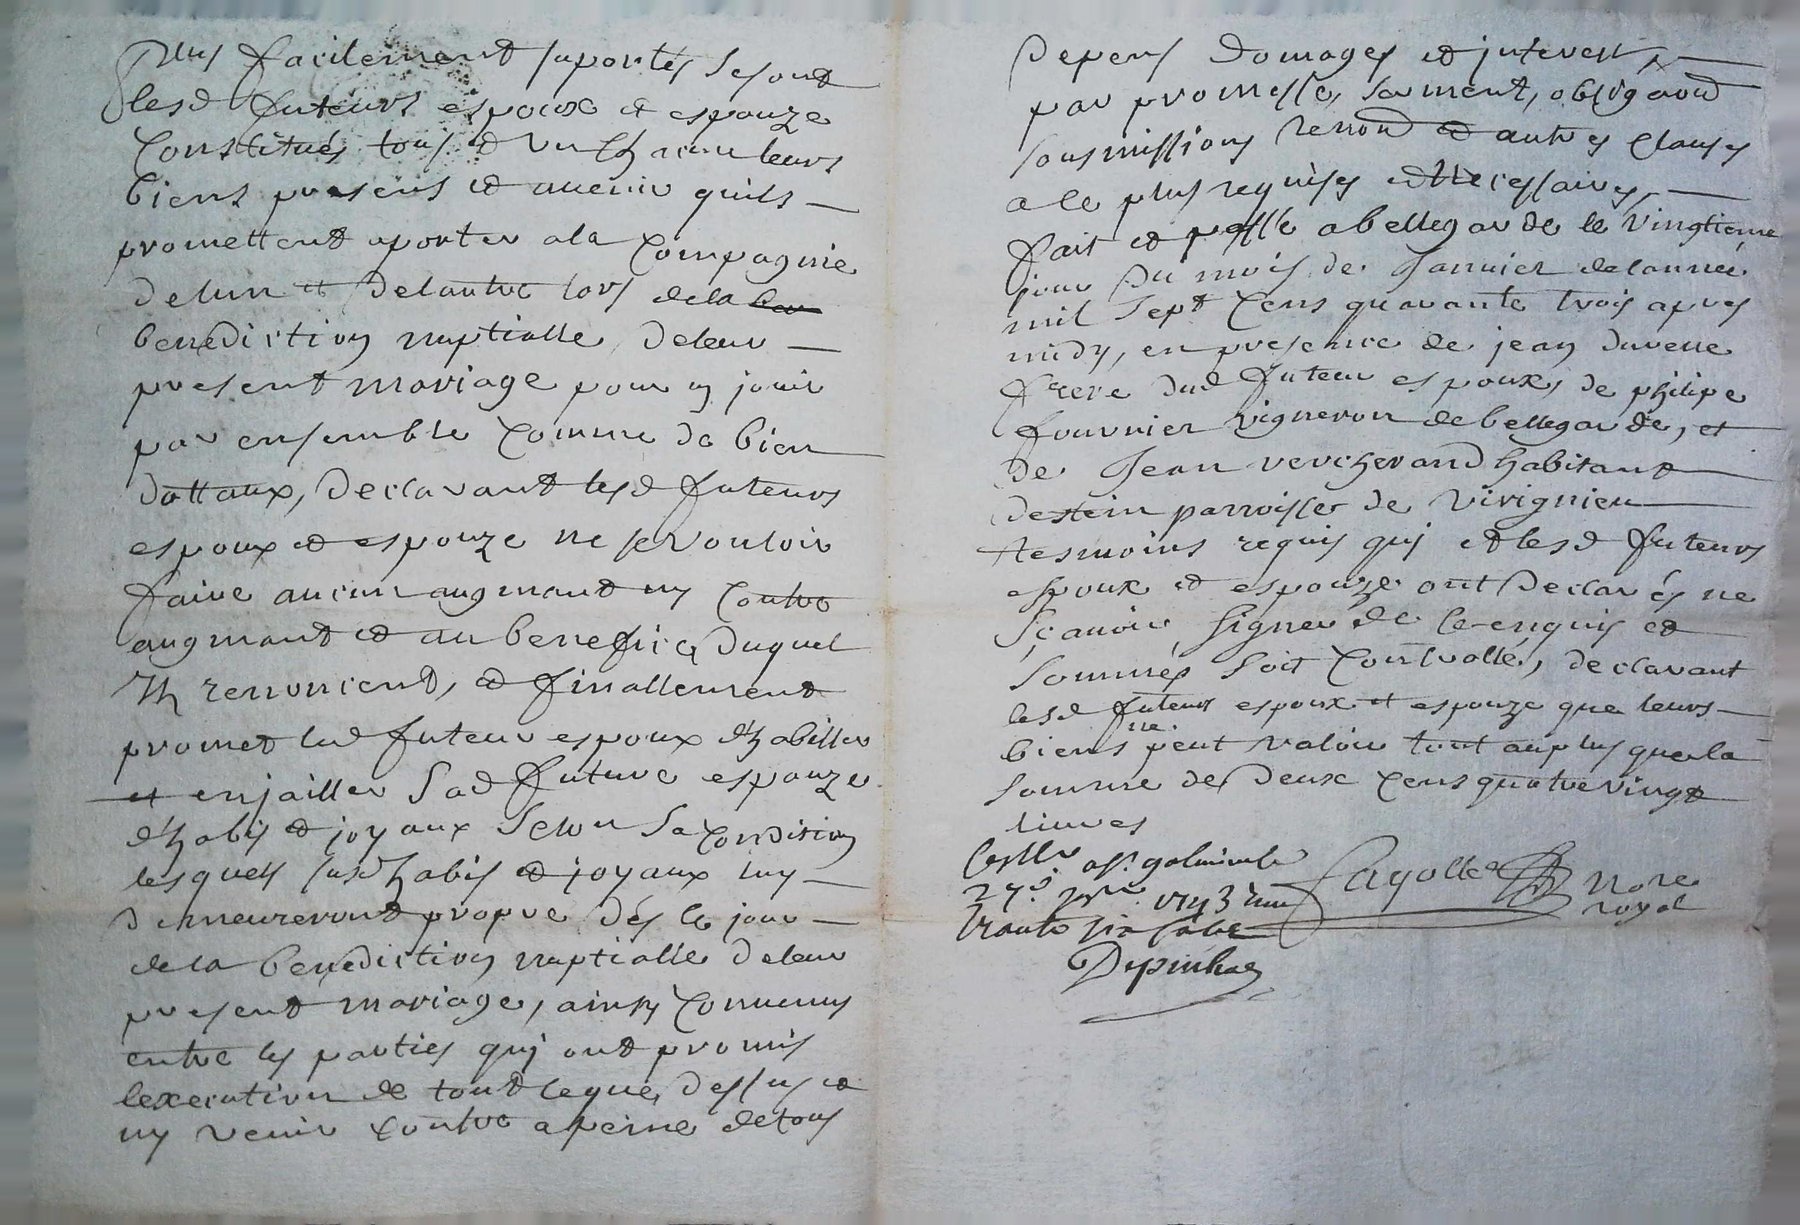 plus facilement suportés se sont
lesd futeurs espoux et espouze
Constitués tous et un chacun leurs
biens presens et avenir quils
promettent aporter a la Compagnie
de lun et de lautre lors de la
benediction nuptialle de leur
present mariage pour y jouir
par ensemble Comme de bien
dottaux, Declarant lesd futeurs
espoux et espouze ne se vouloir
faire aucun augmant ny Contre
augmant et au benefice duquel
Ils renoncent, et finallement
promet led futeur espoux d'habiller
et enjailler Sad future espouze
d'habis et joyaux Selon Sa Condition
lesquels susd habis et joyaux luy
demeureront propre dés le jour
de la benediction nuptialle de leur
present mariage, ainsy Convenus
entre les parties quj ont promis
lexecution de tout leque dessus et
ny venir Contre a peine de tous
Depens Domages et jnterests
par promesse, serment, obligaond
sousmissions renond et autres Clauses
a le plus requises et necessaires
fait et passé a bellegarde le vingtieme
jour Du mois de Janvier de lanneé
mil Sept Cens quarante trois apres
midy, en presence de jean duverne
frere dud futeur espoux, de philipe
fournier vigneron de bellegarde, et
de Jean vercherand habitant
destein parroisse de virignieu
tesmoins requis quj et lesd futeurs
espoux et espouze ont Declarés ne
sçavoir signer de Ce enquis et
Sommés soit Controllé, declarant
lesd futeurs espoux et espouze que leurs
biens ne peut valoir tout au plus que la
somme de Deux Cens quatre vingt
livres
Conlle a St galmier le
27e. janr. 1743 recu
trante six sols
Fayolle Nore
royal
Depinhac